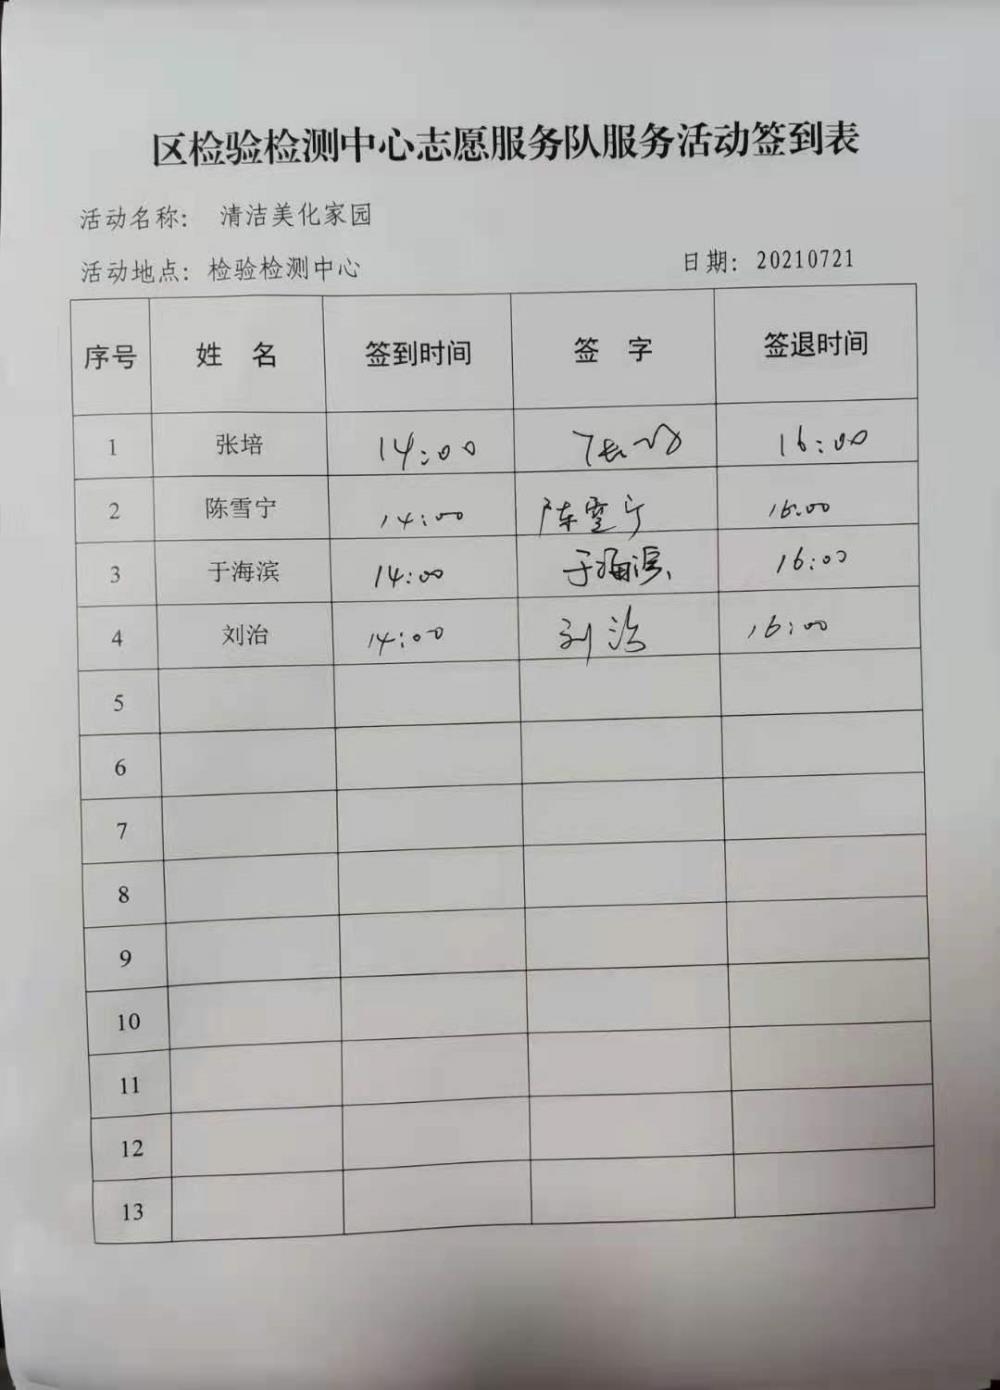 区检验检测中心志愿服务队服务活动签到表
活动名称: 清洁美化家园
活动地点: 检验检测中心 日期: 20210721
序号 姓 名 签到时间 签 字 签退时间
1 张培 14:00 16:00
2 陈雪宁 14:00 陈雪宁 16:00
3 于海滨 14:00 于海滨 16:00
4 刘治 14:00 刘治 16:00
5
6
7
8
9
10
11
12
13